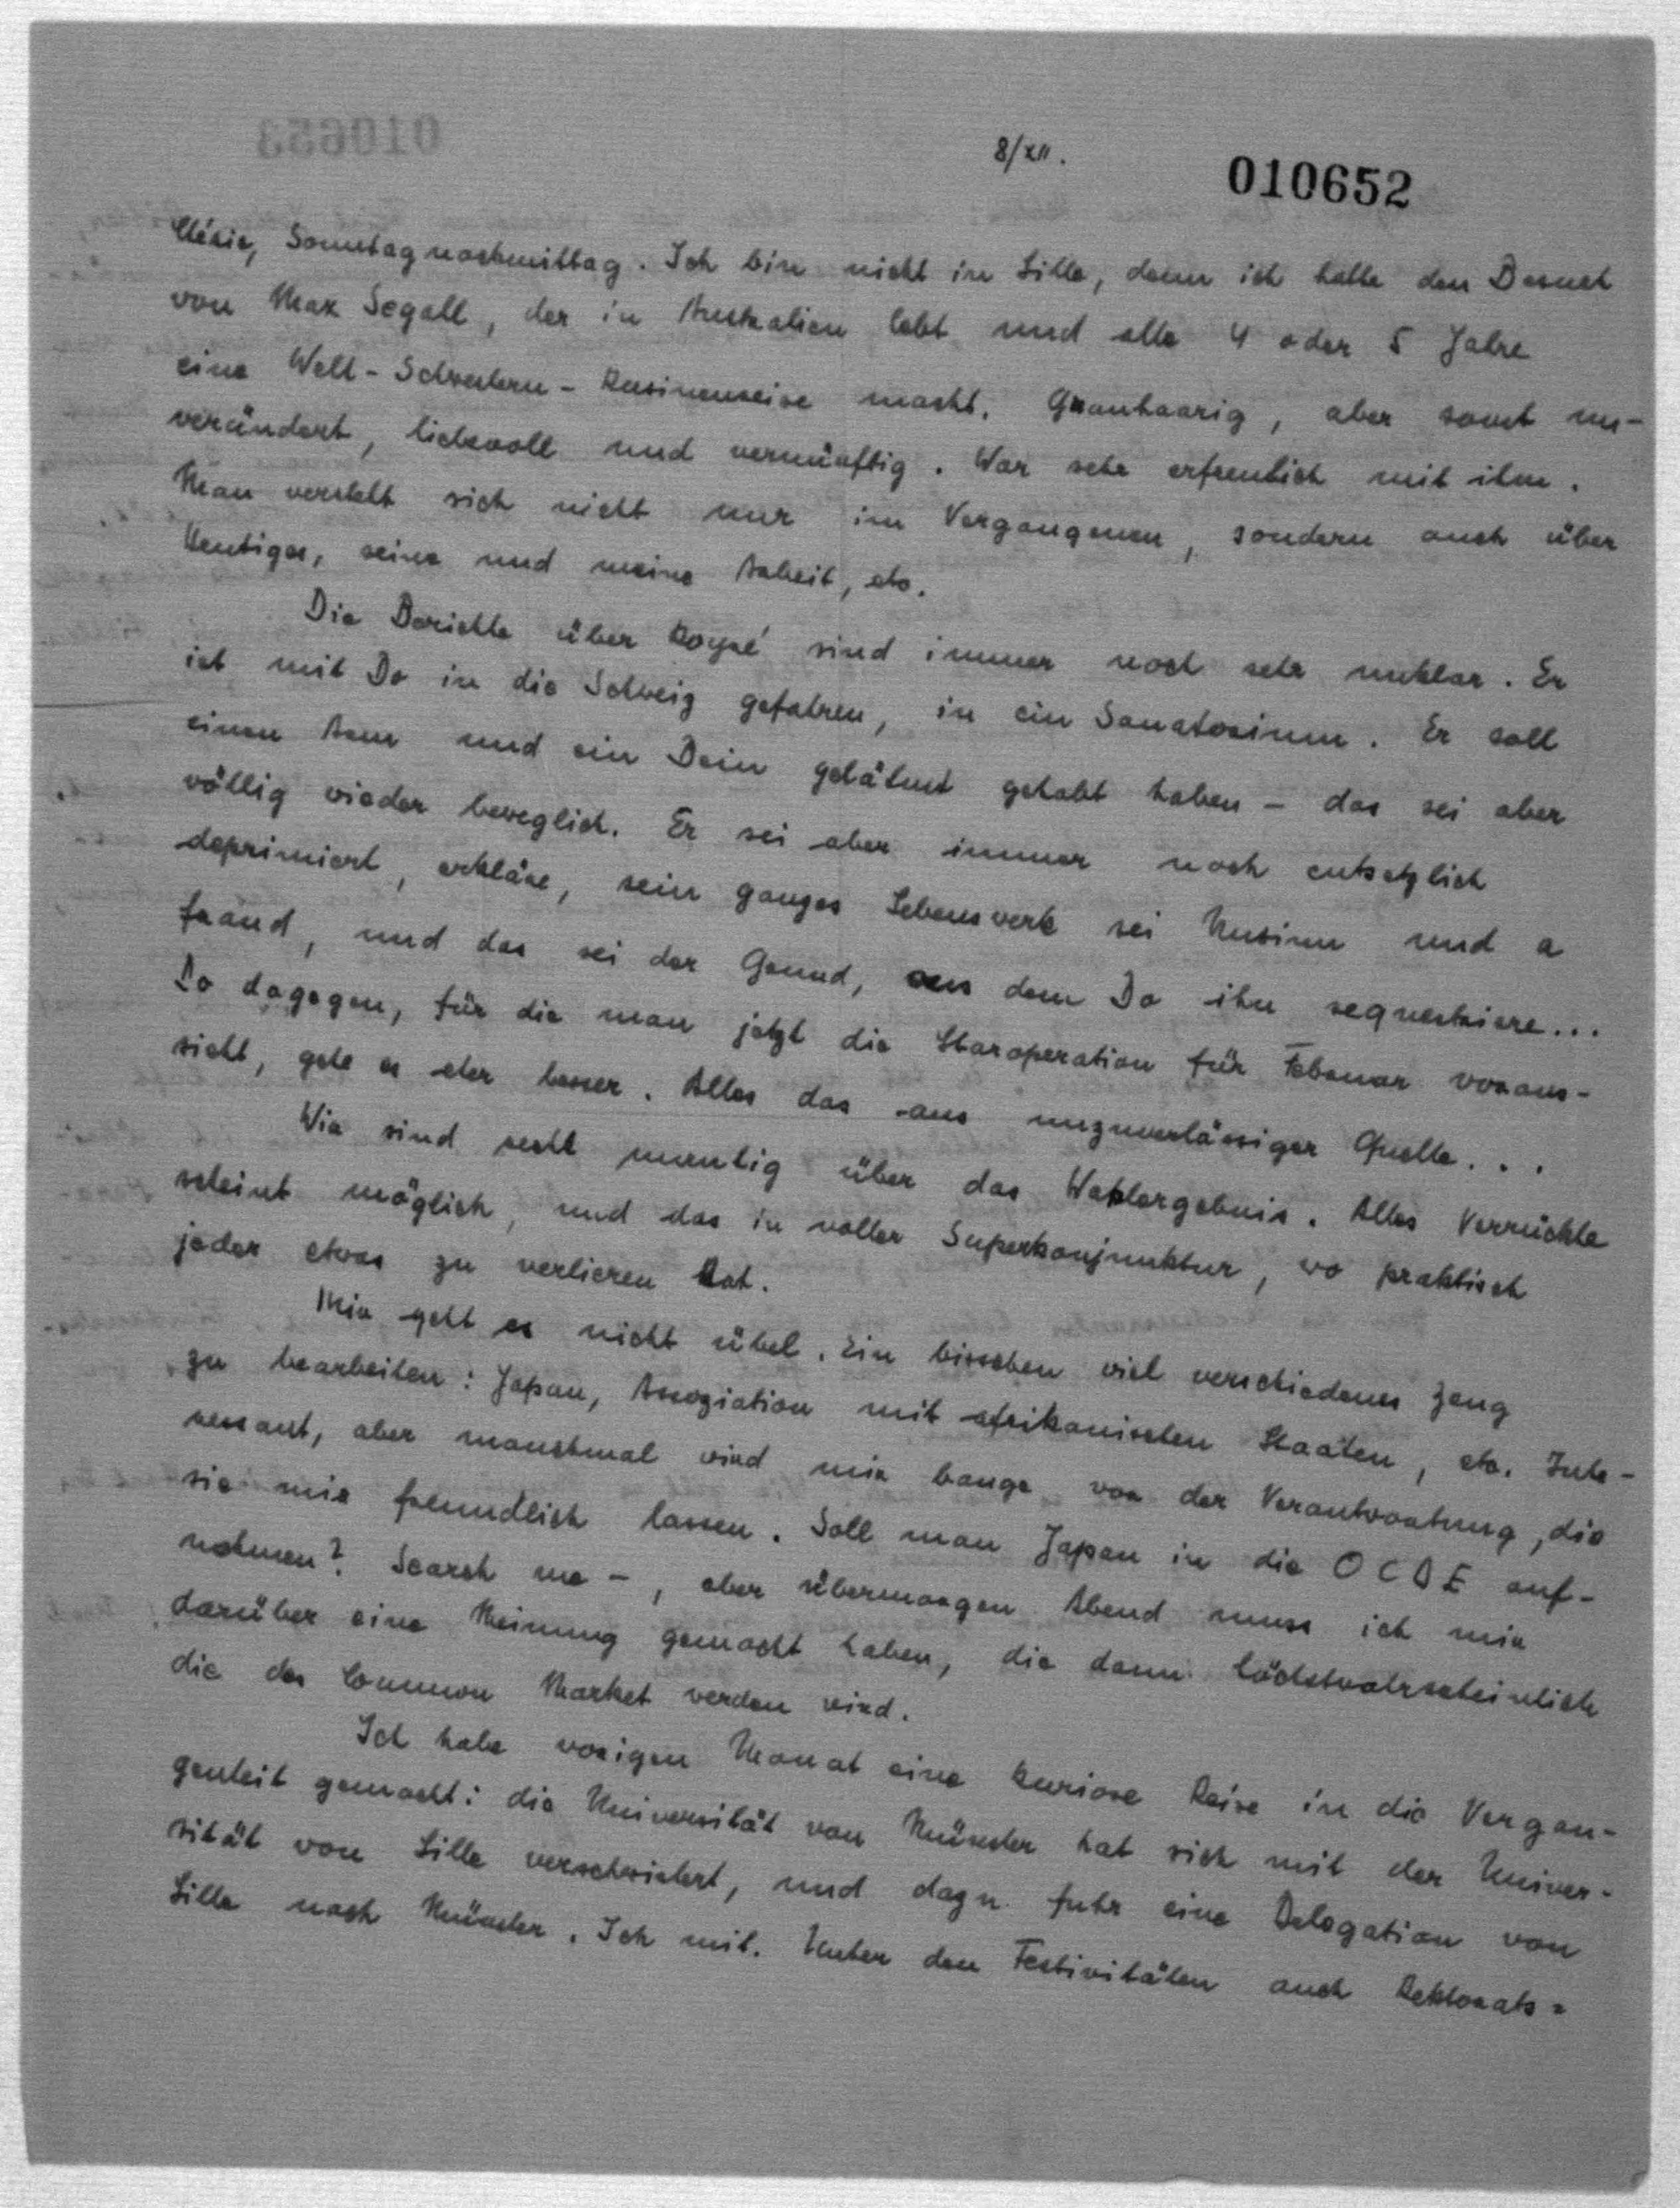 8/XII.
010652
Chérie, Sonntagnachmittag. Ich bin nicht in Lille, denn ich hatte den Besuch
von Max Segall, der in Australien lebt und alle 4 oder 5 Jahre
eine Welt-Schwestern-Kusinenreise macht. Grauhaarig, aber sonst un-
verändert, liebevoll und vernünftig. War sehr erfreulich mit ihm.
Man versteht sich nicht nur im Vergangenen, sondern auch über
Heutiges, seine und meine Arbeit, etc.
Die Berichte über Koyré sind immer noch sehr unklar. Er
ist mit Do in die Schweiz gefahren, in ein Sanatorium. Er soll
einen Arm und ein Bein gelähmt gehabt haben – das sei aber
völlig wieder beweglich. Er sei aber immer noch entsetzlich
deprimiert, erkläre, sein ganzes Lebenswerk sei Unsinn und a
fraud, und das sei der Grund, aus dem Do ihn sequestriere...
Do dagegen, für die man jetzt die Staroperation für Februar voraus-
sieht, gehe es eher besser. Alles das aus unzuverlässiger Quelle...
Wir sind recht unruhig über das Wahlergebnis. Alles Verrückte
scheint möglich, und das in voller Superkonjunktur, wo praktisch
jeder etwas zu verlieren hat.
Mir geht es nicht übel. Ein bisschen viel verschiedenes Zeug
zu bearbeiten: Japan, Assoziation mit afrikanischen Staaten, etc. Inte-
ressant, aber manchmal wird mir bange vor der Verantwortung, die
sie mir freundlich lassen. Soll man Japan in die OCDE auf-
nehmen? Search me –, aber übermorgen Abend muss ich mir
darüber eine Meinung gemacht haben, die dann höchstwahrscheinlich
die des Common Market werden wird.
Ich habe vorigen Monat eine kuriose Reise in die Vergan-
genheit gemacht: die Universität von Münster hat sich mit der Univer-
sität von Lille verschwistert, und dazu fuhr eine Delegation von
Lille nach Münster. Ich mit. Unter den Festivitäten auch Rektorats-